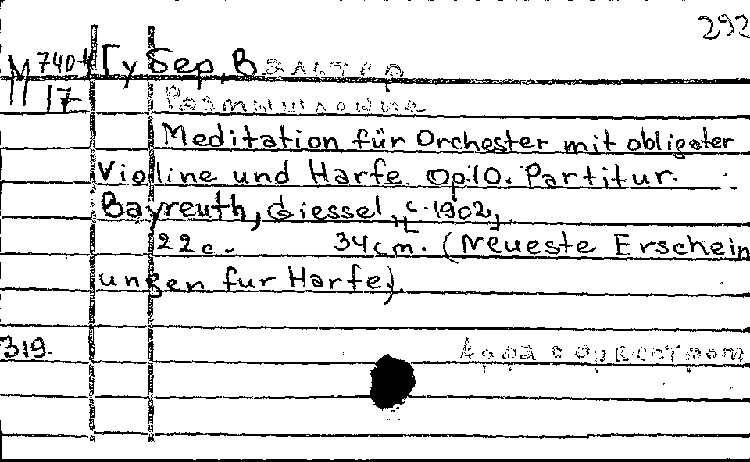 292
М 740-4 Губер, Вальтер
17 Размышление
Meditation für Orchester mit obligater
Violine und Harfe Op.10. Partitur.
Bayreuth, Giessel, [c. 1902],
22 c. 34 cm. (Neueste Erschein
ungen fur Harfe).
319. Арфа с оркестром